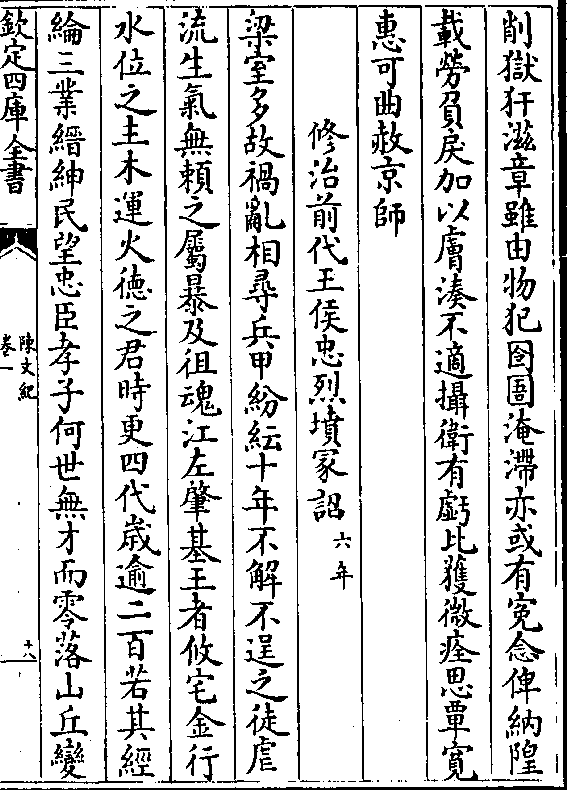 削獄犴滋章雖由物犯囹圄淹滯亦或有寃念俾納隍
載勞負戾加以膚湊不適攝衛有虧比獲微痊思覃寛
惠可曲赦京師
修治前代王侯忠烈墳冢詔六年
梁室多故禍亂相尋兵甲紛紜十年不解不逞之徒虐
流生氣無頼之屬暴及徂魂江左肇基王者攸宅金行
水位之主木運火德之君時更四代歳逾二百若其經
綸三業縉紳民望忠臣孝子何世無才而零落山丘變
欽定四庫全書
陳文紀
卷一
十八